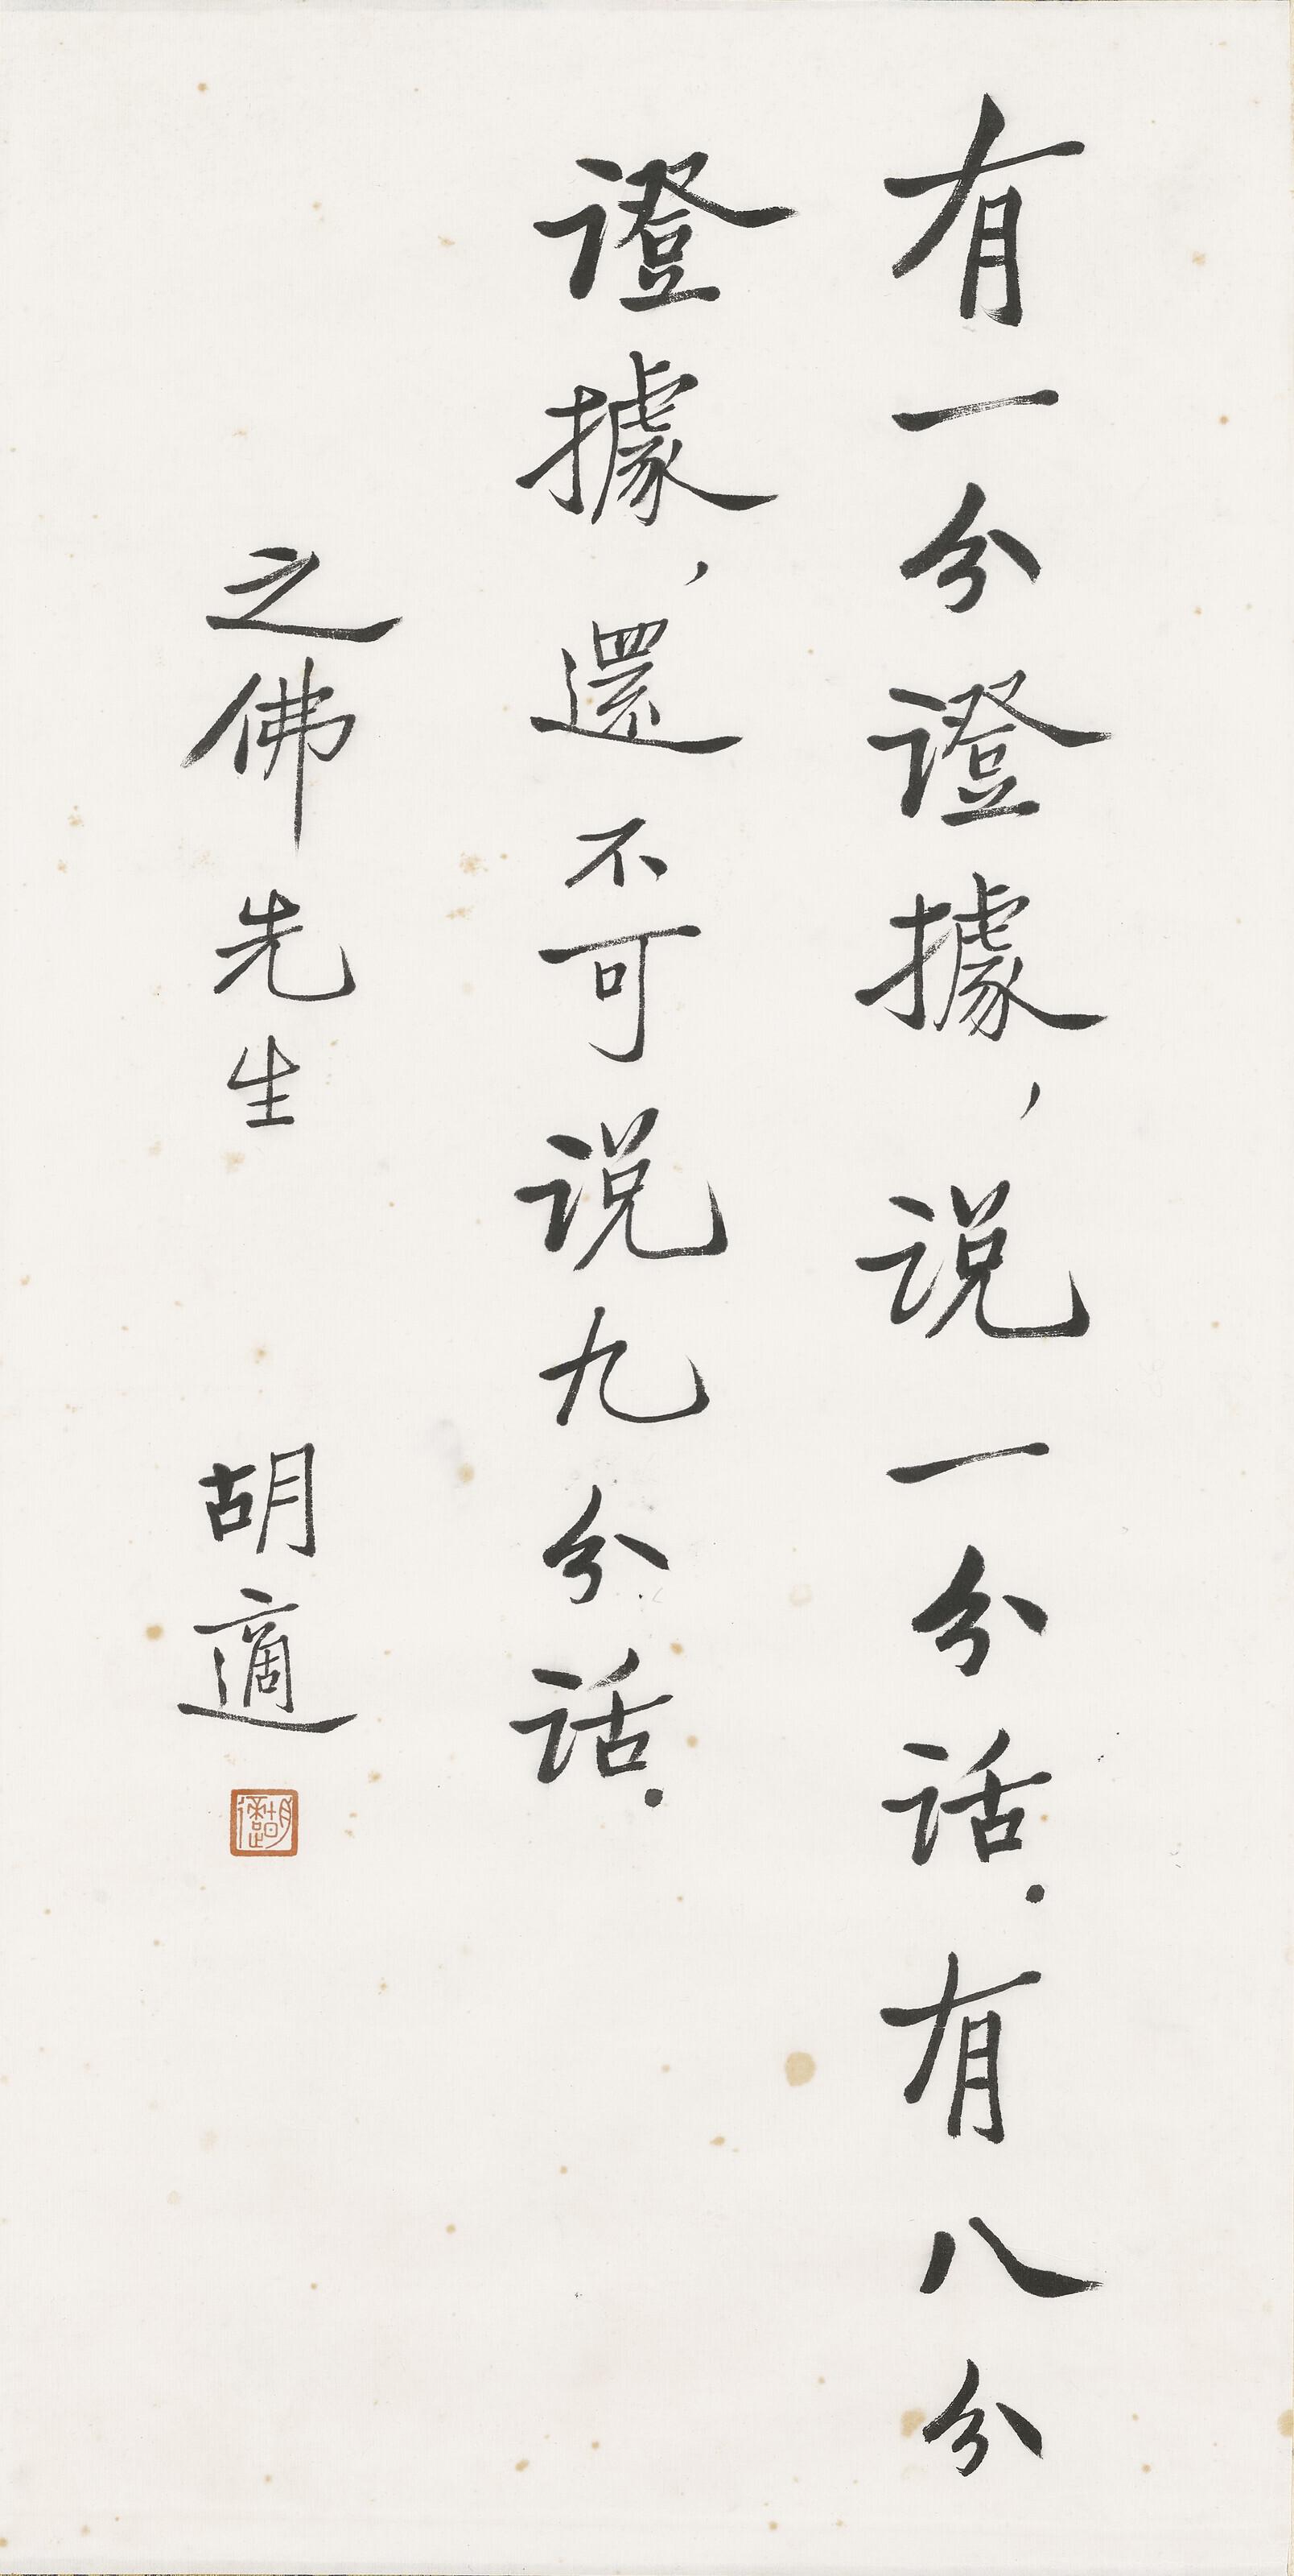 有一分證據，說一分話．有八分
證據，還不可說九分話．
之佛先生　胡適
胡適